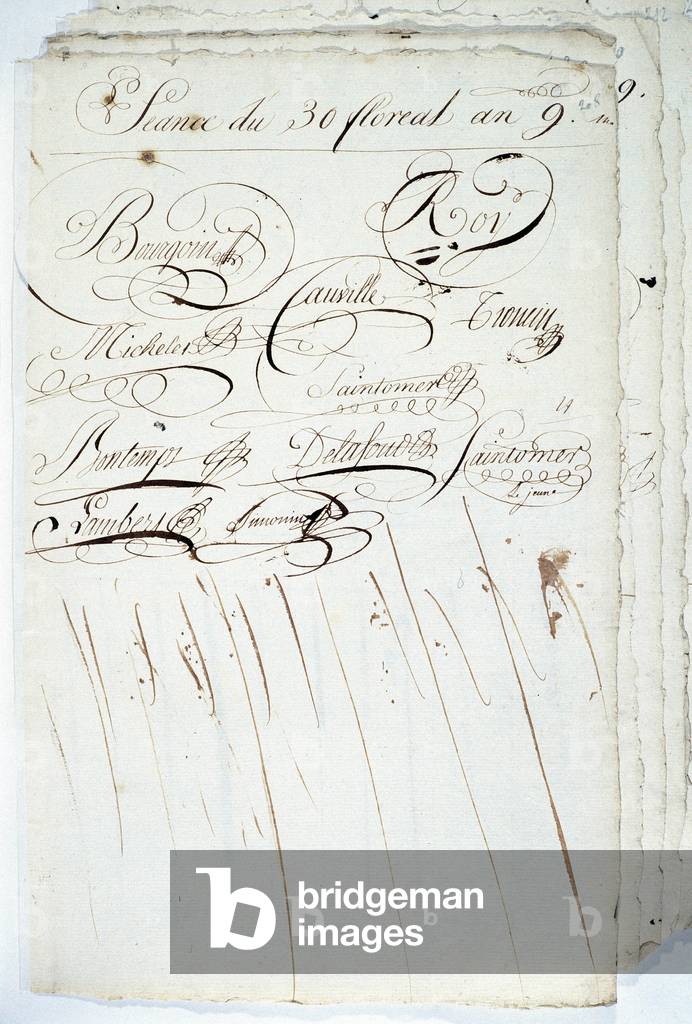 Seance du 30 floreal an 9.
9.
Bourgoin Roy
Cauville
Michelet
Saintomer
Bontemps Delafoud Saintomer
Le jeune
Lambert Simonin
bridgeman
images